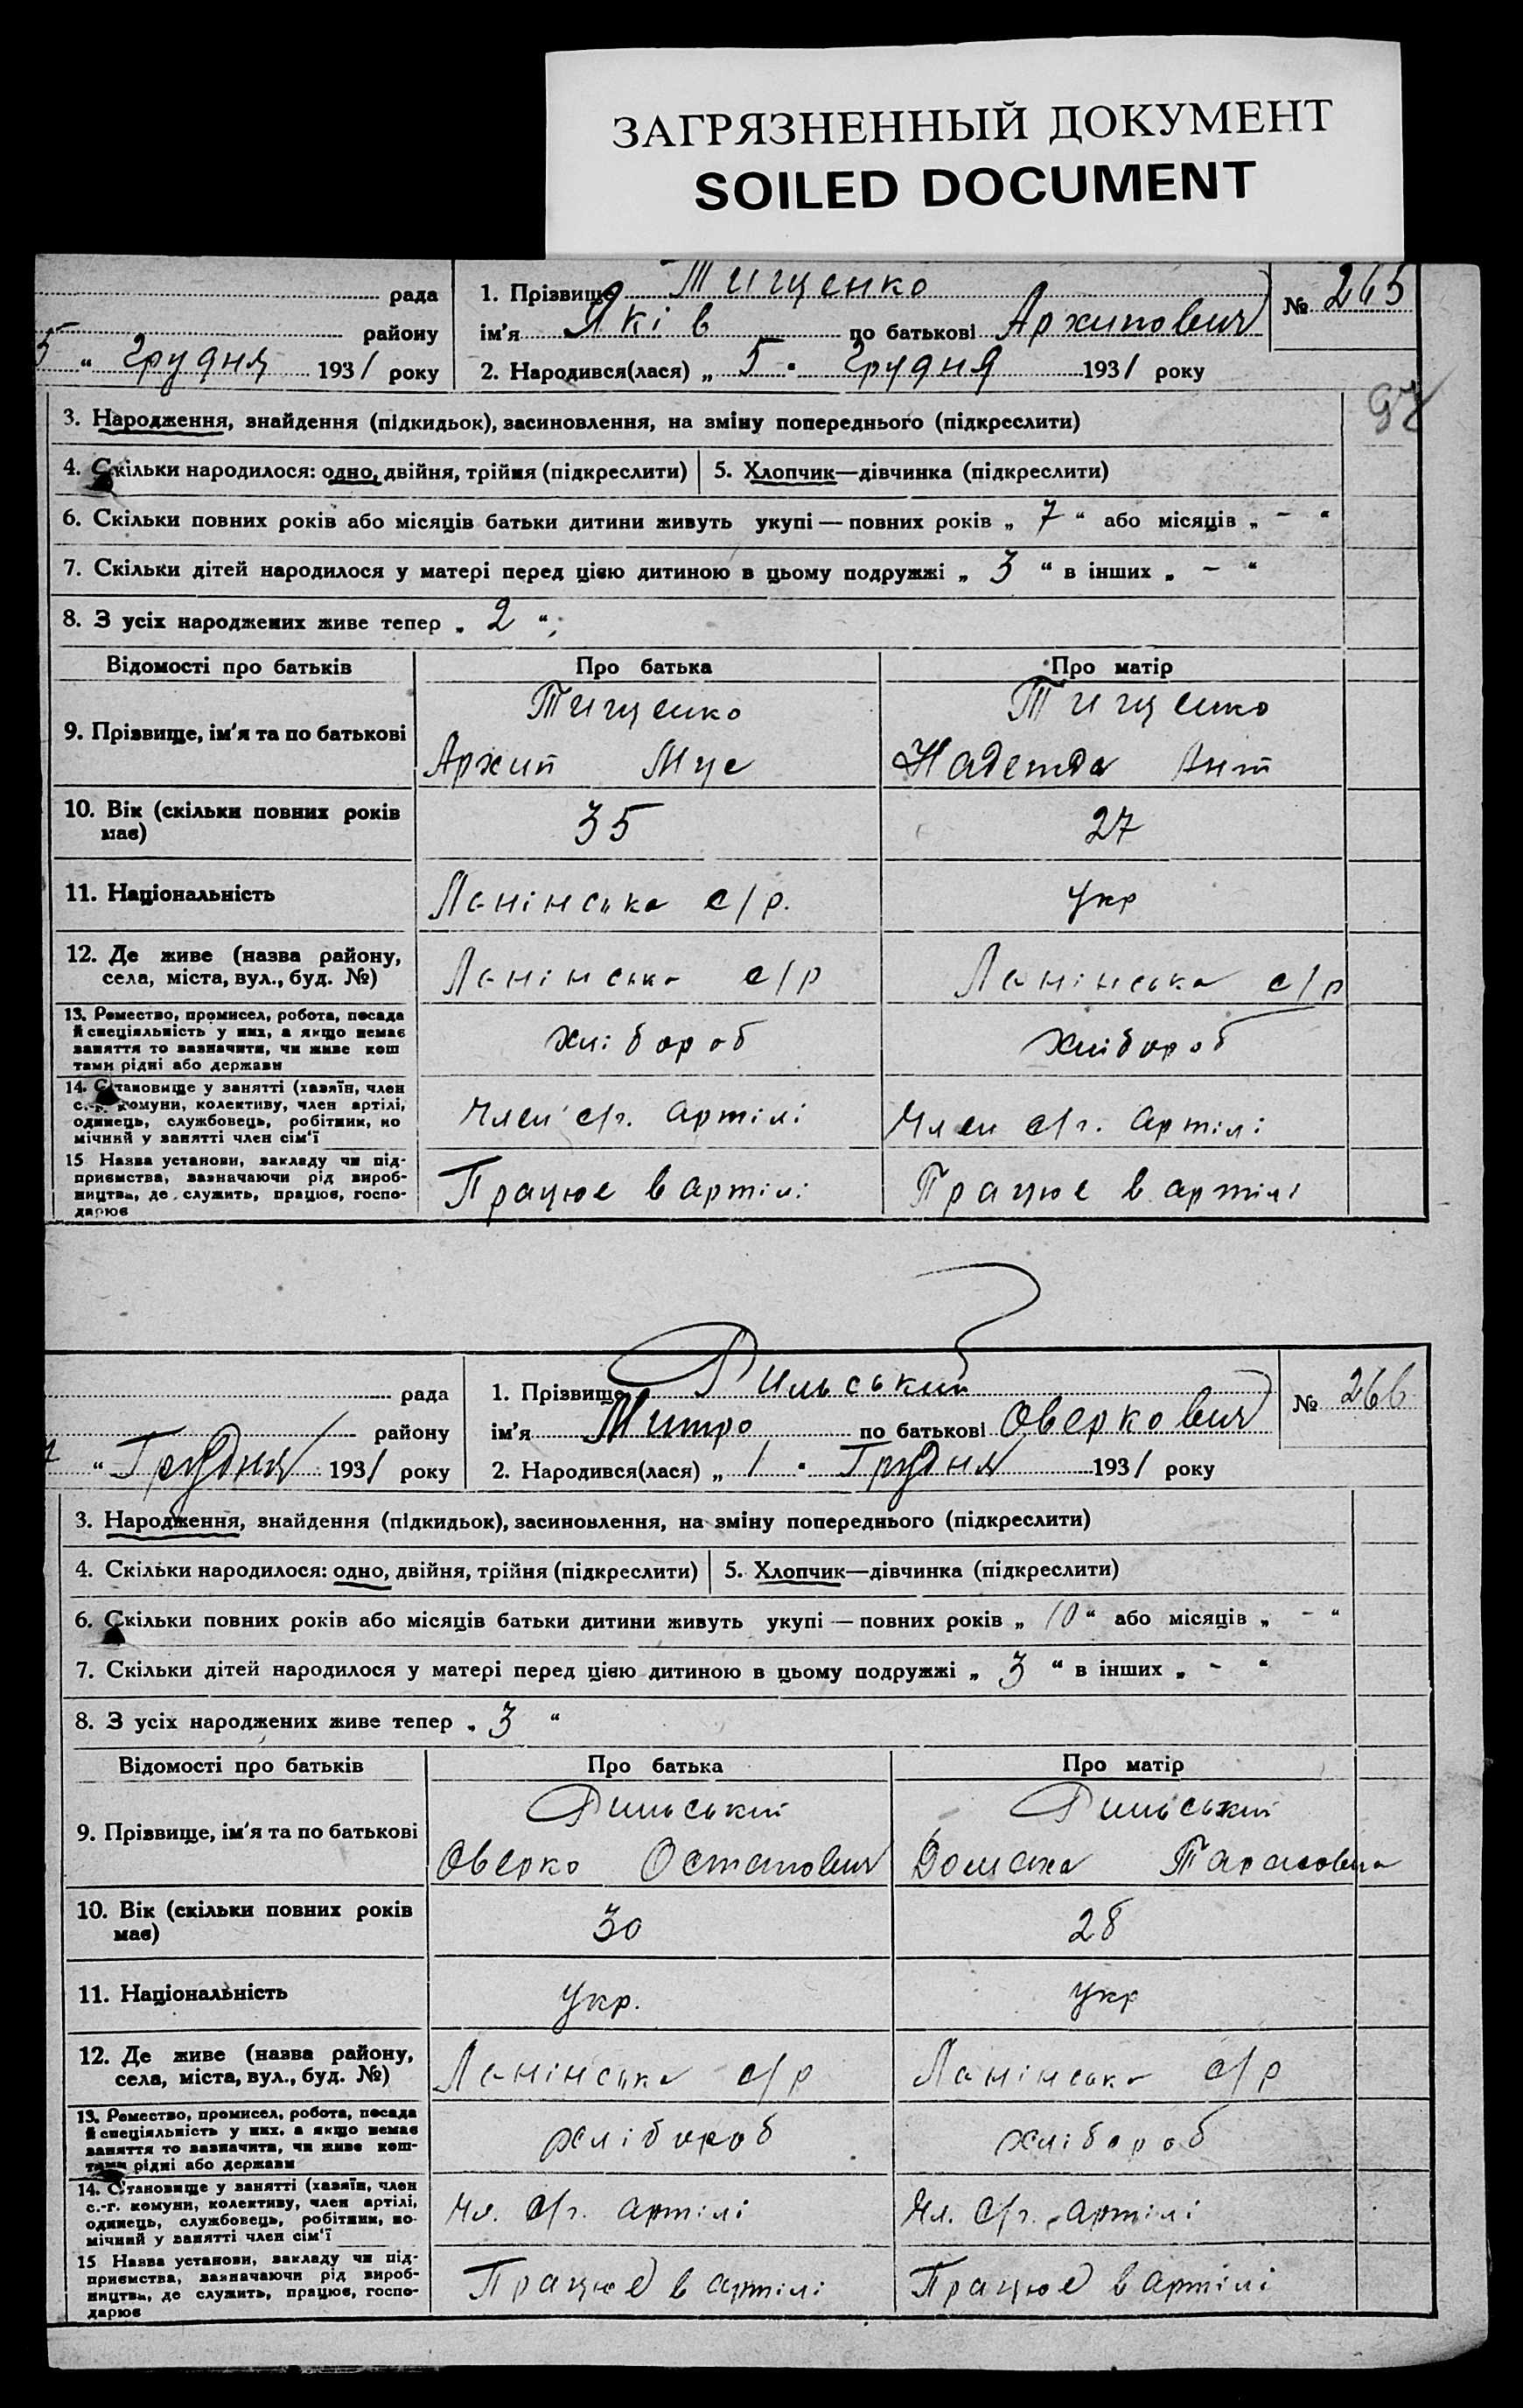 ЗАГРЯЗНЕННЫЙ ДОКУМЕНТ
SOILED DOCUMENT
рада
району
5 “ Грудня 1931 року
1. Прізвище Тищенко
ім'я Яків по батькові Архипович
2. Народився(лася) „ 5 “ Грудня 1931 року
№ 265
97
3. Народження, знайдення (підкидьок), засиновлення, на зміну попереднього (підкреслити)
4. Скільки народилося: одно, двійня, трійня (підкреслити) 5. Хлопчик—дівчинка (підкреслити)
6. Скільки повних років або місяців батьки дитини живуть укупі — повних років „ 7 “ або місяців „ - “
7. Скільки дітей народилося у матері перед цією дитиною в цьому подружжі „ 3 “ в інших „ - “
8. З усіх народжених живе тепер „ 2 “;
Відомості про батьків Про батька Про матір
9. Прізвище, ім'я та по батькові
Тищенко
Архип
Тищенко
Надежда Ант
10. Вік (скільки повних років
має)
35 27
11. Національність Ланінська с/р. Укр
12. Де живе (назва району,
села, міста, вул., буд. №)
Ланінська с/р Ланінська с/р
13. Ремество, промисел, робота, посада
й спеціяльність у них, а якщо немає
заняття то зазначити, чи живе кош
тами рідні або держави
хлібороб хлібороб
14. Становище у занятті (хазяїн, член
с.-г. комуни, колективу, член артілі,
одинець, службовець, робітник, по
мічний у занятті член сім'ї
Член с/г. артілі Член с/г. артілі
15 Назва установи, закладу чи під-
приємства, зазначаючи рід вироб-
ництва, де служить, працює, госпо-
дарює
Працює в артілі Працює в артілі
рада
району
“ Грудня 1931 року
1. Прізвище Рильський
ім'я Митро по батькові Оверкович
2. Народився(лася) „ 1 “ Грудня 1931 року
№ 266
3. Народження, знайдення (підкидьок), засиновлення, на зміну попереднього (підкреслити)
4. Скільки народилося: одно, двійня, трійня (підкреслити) 5. Хлопчик—дівчинка (підкреслити)
6. Скільки повних років або місяців батьки дитини живуть укупі — повних років „ 10 “ або місяців „ - “
7. Скільки дітей народилося у матері перед цією дитиною в цьому подружжі „ 3 “ в інших „ - “
8. З усіх народжених живе тепер „ 3 “
Відомості про батьків Про батька Про матір
9. Прізвище, ім'я та по батькові
Рильський
Оверко Остапович
Рильський
Домаха Тарасовна
10. Вік (скільки повних років
має)
30 28
11. Національність Укр. Укр
12. Де живе (назва району,
села, міста, вул., буд. №)
Ланінська с/р Ланінська с/р
13. Ремество, промисел, робота, посада
й спеціяльність у них, а якщо немає
заняття то зазначити, чи живе кош-
тами рідні або держави
хлібороб хлібороб
14. Становище у занятті (хазяїн, член
с.-г. комуни, колективу, член артілі,
одинець, службовець, робітник, по-
мічний у занятті член сім'ї
Чл. с/г. артілі Чл. с/г. артілі
15 Назва установи, закладу чи під-
приємства, зазначаючи рід вироб-
ництва, де служить, працює, госпо-
дарює
Працює в артілі Працює в артілі